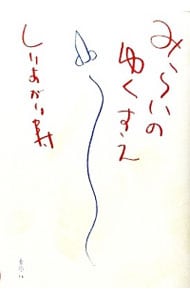 みらいの
ゆくすえ
しりあがり寿